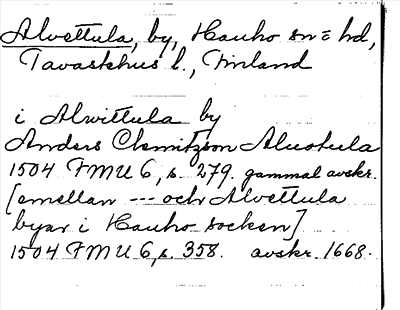 Alvettula, by, Hauho sn = hd,
Tavastehus l., Finland
i Alwittula by
Anders Clemitzson Aluotula
1504 FMU 6, s. 279. gammal avskr.
[emellan --- och Alvettula
byar i Hauho socken]
1504 FMU 6, s. 358. avskr. 1668.